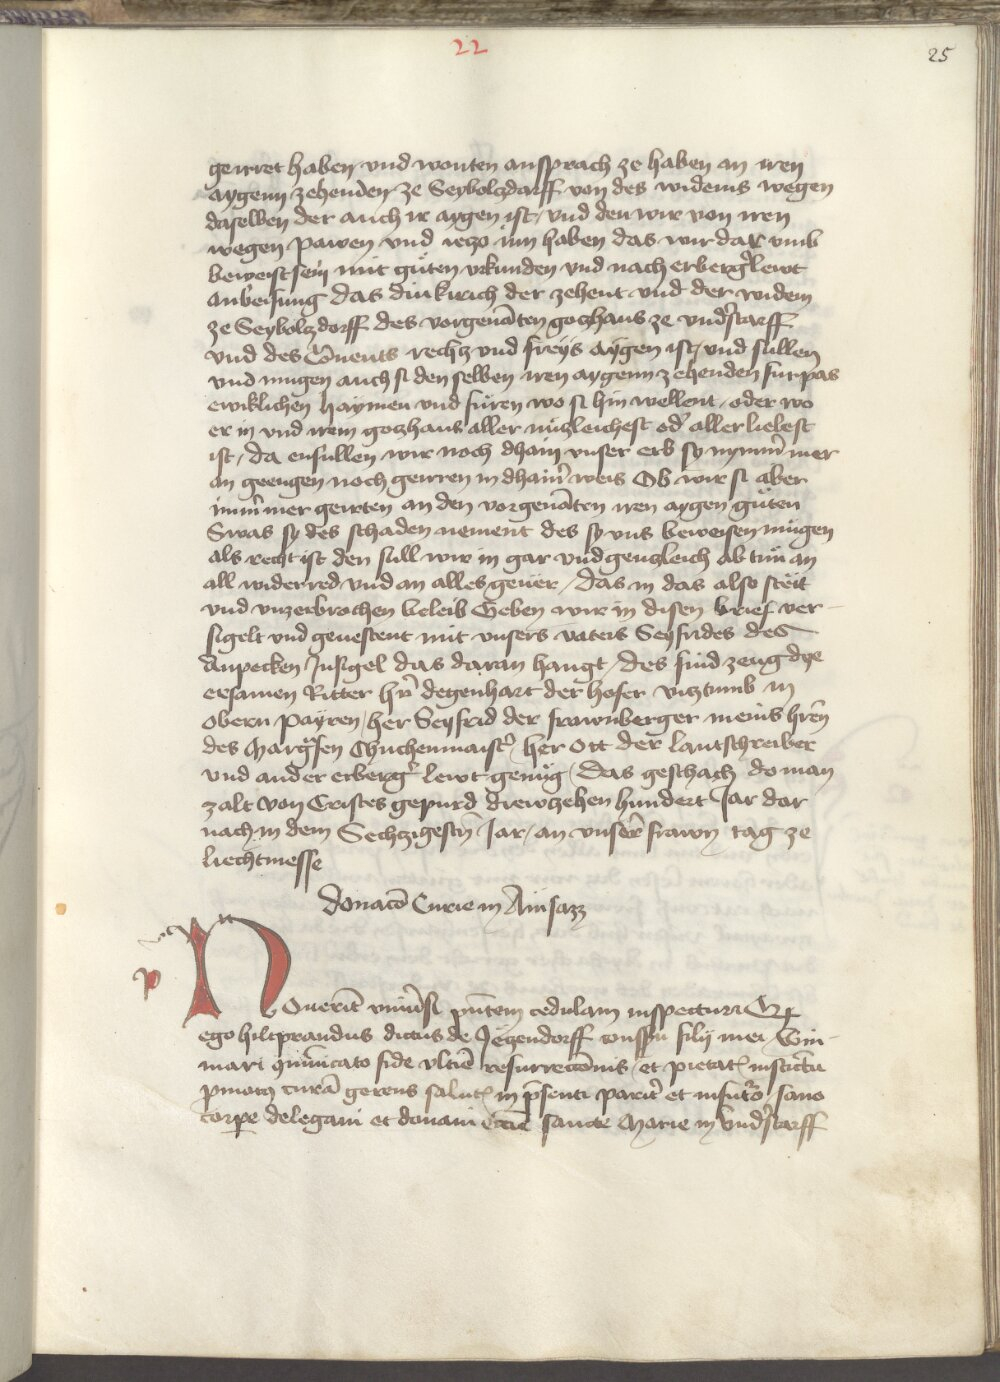 22
25
geirret haben vnd wonten anssprach ze haben an iren
aygenn zehenden ze Seyboltzdarff von des widems wegen
daselben der auch ir aygen ist / vnd den wir von iren
wegen pawen vnd yetzo inn haben das wir dar vmb
beweist sein mit guten vrkunden vnd nach erberg lewt
anbeisung das die kirich der zehent vnd der widem
ze Seyboltzdorff des vorgenāten gotzhaus ze vnd̓starff
vnd des Cōuents rechtz vnd freys aygen ist / vnd sullen
vnd mugen auch si den selben iren aygenn zehenden furpas
ewiklichen haymen vnd füren wo si hin wellent / oder wo
er in vnd irem gotzhaus aller nützleichest od̓ aller liebest
ist / da ensullen wir noch dhain vnser erb sy nymm̄ mer
an geengen noch geirren in dhain̄ weis Ob wir si aber
imm̄ mer geirten an den vorgenāten iren aygen guten
Swas sy des schaden nement des sy vns beweisen mügen
als recht ist den sull wir in gar vnd gengleich ab tun an
all widerred vnd an alles geuer / das in das also stett
vnd vnzerbrochen beleib Geben wir in disen brief ver-
sigelt vnd geuestent mit vnsers vaters Seyfrides des
Anpecken Jnsigel das daran hangt / des sind zeug dye
ersamen Ritter hr̄ degenhart der hofer vitztumb in
obern payren / her Seyfrid der frawnberger meins hren
des Margͣfen Chuchenmaist̓ / her Ott der lantschreiber
vnd ander erberg̓ lewt genug / das geschach do man
zalt von Cristes gepurd drewzehen hundert Jar dar
nach in dem Sechtzigestn̄ Jar / an vnser̄ frawn tag ze
liechtmesse
donacō Curie in Ainsazz
NOuerīt vniu̓si pn̄tem cedulam inspecturi Qꝫ
ego hiltprandus dictus de Jegendorff conssu filij mei Win-
mari 9mūicato fide vltīe resurrectōnis et pietat̓ instīctu
pmotꝫ curā gerens salut̓ in p̄senti parit̓ et in futͦo sano
corpe delegaui et donaui eccīe sancte Marie in vnd̓starff